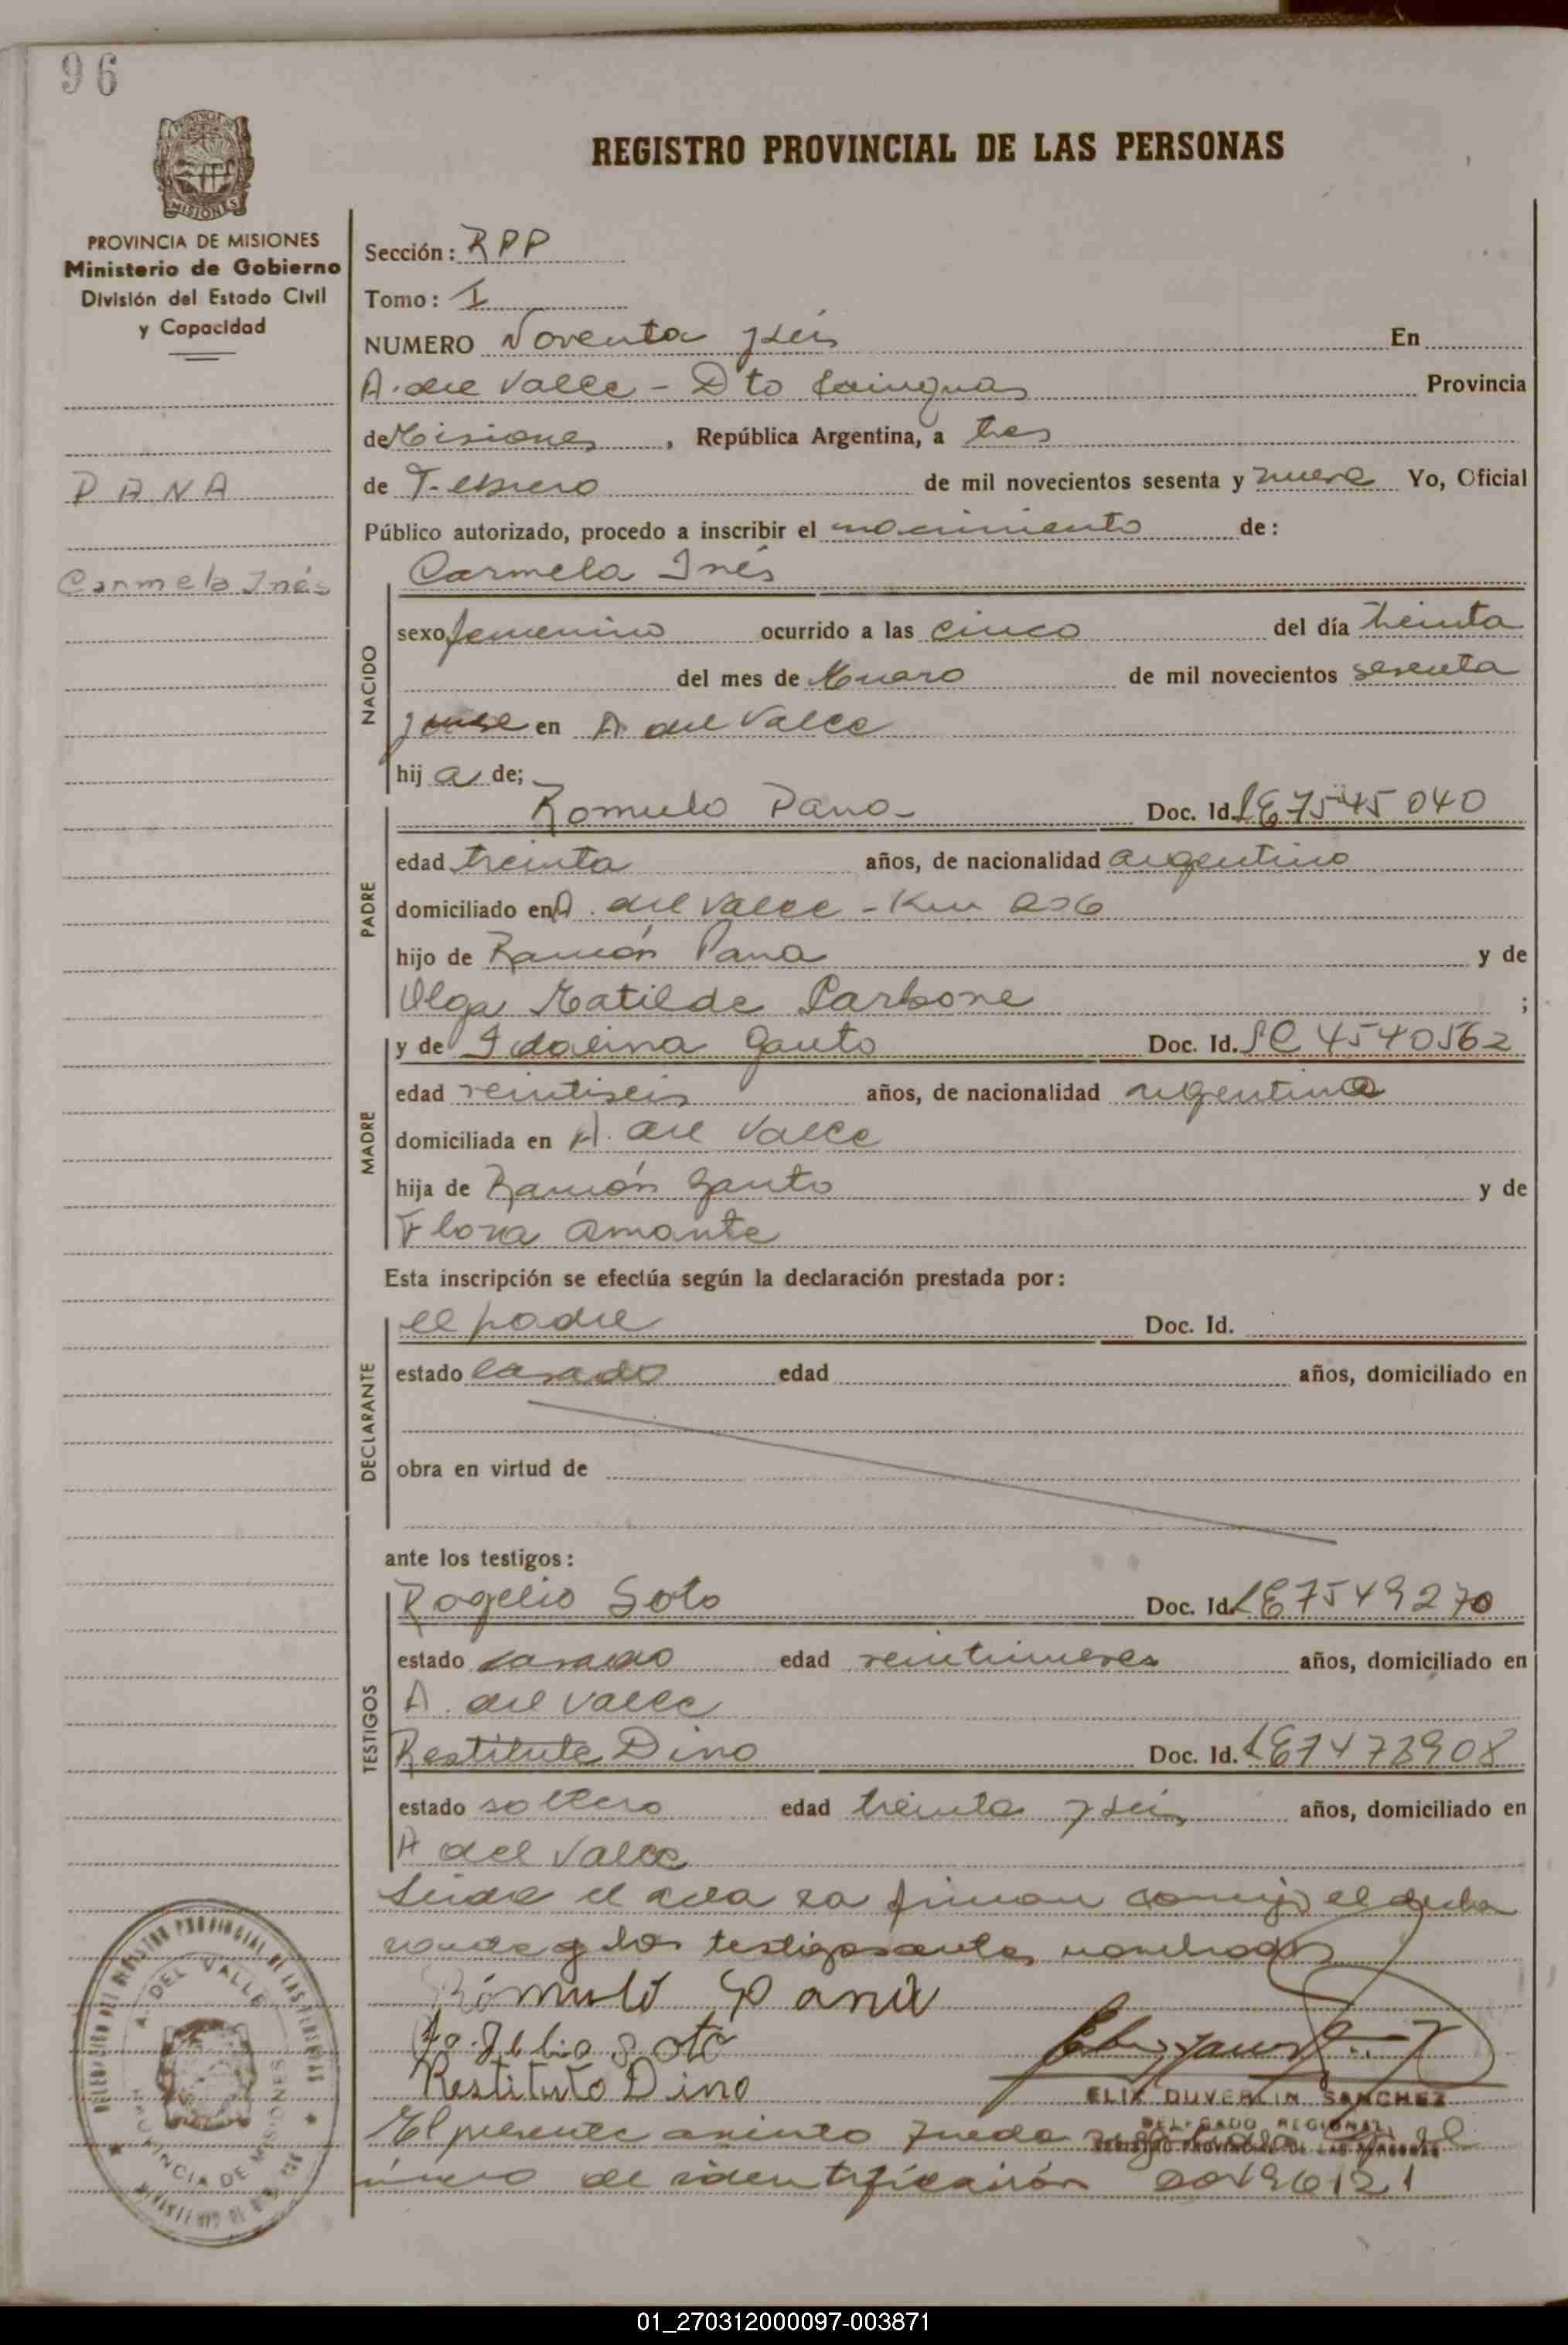 96
MISIONES
PROVINCIA DE MISIONES
Ministerio de Gobierno
División del Estado Civil
y Capacidad
PANA
Carmela Inés
REGISTRO PROVINCIAL DE LAS PERSONAS
Sección: RPP
Tomo: I
NUMERO Noventa y seis En
A. del Valle - Dto Cainguas Provincia
de Misiones, República Argentina, a tres
de Febrero de mil novecientos sesenta y nueve Yo, Oficial
Público autorizado, procedo a inscribir el nacimiento de:
NACIDO
Carmela Inés
sexo femenino ocurrido a las cinco del día treinta
del mes de Enero de mil novecientos sesenta
y nueve en A del Valle
hija de;
PADRE
Romulo Pana- Doc. Id. LE 7545040
edad treinta años, de nacionalidad argentino
domiciliado en A. del Valle - Km 206
hijo de Ramón Pana y de
Olga Matilde ;
MADRE
y de Idalina Gauto Doc. Id. LC 4540562
edad veintiseis años, de nacionalidad argentina
domiciliada en A. del Valle
hija de Ramón Gauto y de
Flora Amante
Esta inscripción se efectúa según la declaración prestada por:
DECLARANTE
el padre Doc. Id.
estado casado edad años, domiciliado en
obra en virtud de
ante los testigos:
TESTIGOS
Rogelio Soto Doc. Id. LE 7549270
estado casado edad veintinueve años, domiciliado en
A. del Valle
Restituto Dino Doc. Id. LE 7473908
estado soltero edad treinta y seis años, domiciliado en
A del Valle
Leida el acta la firman conmigo el decla
rante y los testigos antes nombrados
Rómulo Pana
Rogelio Soto
Restituto Dino
ELIX DUVERLIN SANCHEZ
DELEGADO REGIONAL
REGISTRO PROVINCIAL DE LAS PERSONAS
El presente asiento queda el
número de identificación
DELEGACION DEL REGISTRO PROVINCIAL DE LAS PERSONAS
A. DEL VALLE
PROVINCIA DE MISIONES
01_270312000097-003871